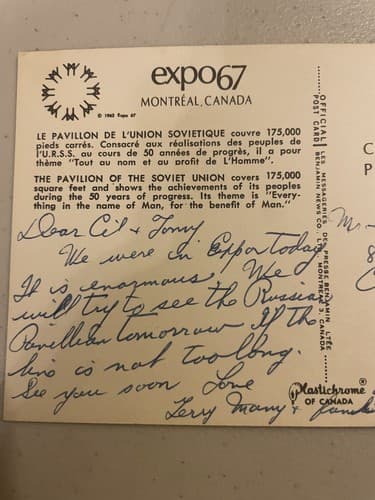 expo67
MONTRÉAL, CANADA
© 1963 Expo 67
LE PAVILLON DE L'UNION SOVIETIQUE couvre 175,000
pieds carrés. Consacré aux réalisations des peuples de
l'U.R.S.S. au cours de 50 années de progrès, il a pour
thème "Tout au nom et au profit de L'Homme".
THE PAVILION OF THE SOVIET UNION covers 175,000
square feet and shows the achievements of its peoples
during the 50 years of progress. Its theme is "Every-
thing in the name of Man, for the benefit of Man."
Dear Cil + Tony
We were in Expo today
It is enormous. We
will try to see the Russian
Pavillian tomorrow If the
line is not too long.
See you soon Love
Terry Many +
OFFICIAL POST CARD
LES MESSAGERIES DE PRESSE BENJAMIN LTÉE
BENJAMIN NEWS CO. LTD., MONTREAL 3, CANADA
Plastichrome
OF CANADA
C
P
Mr.
8
C